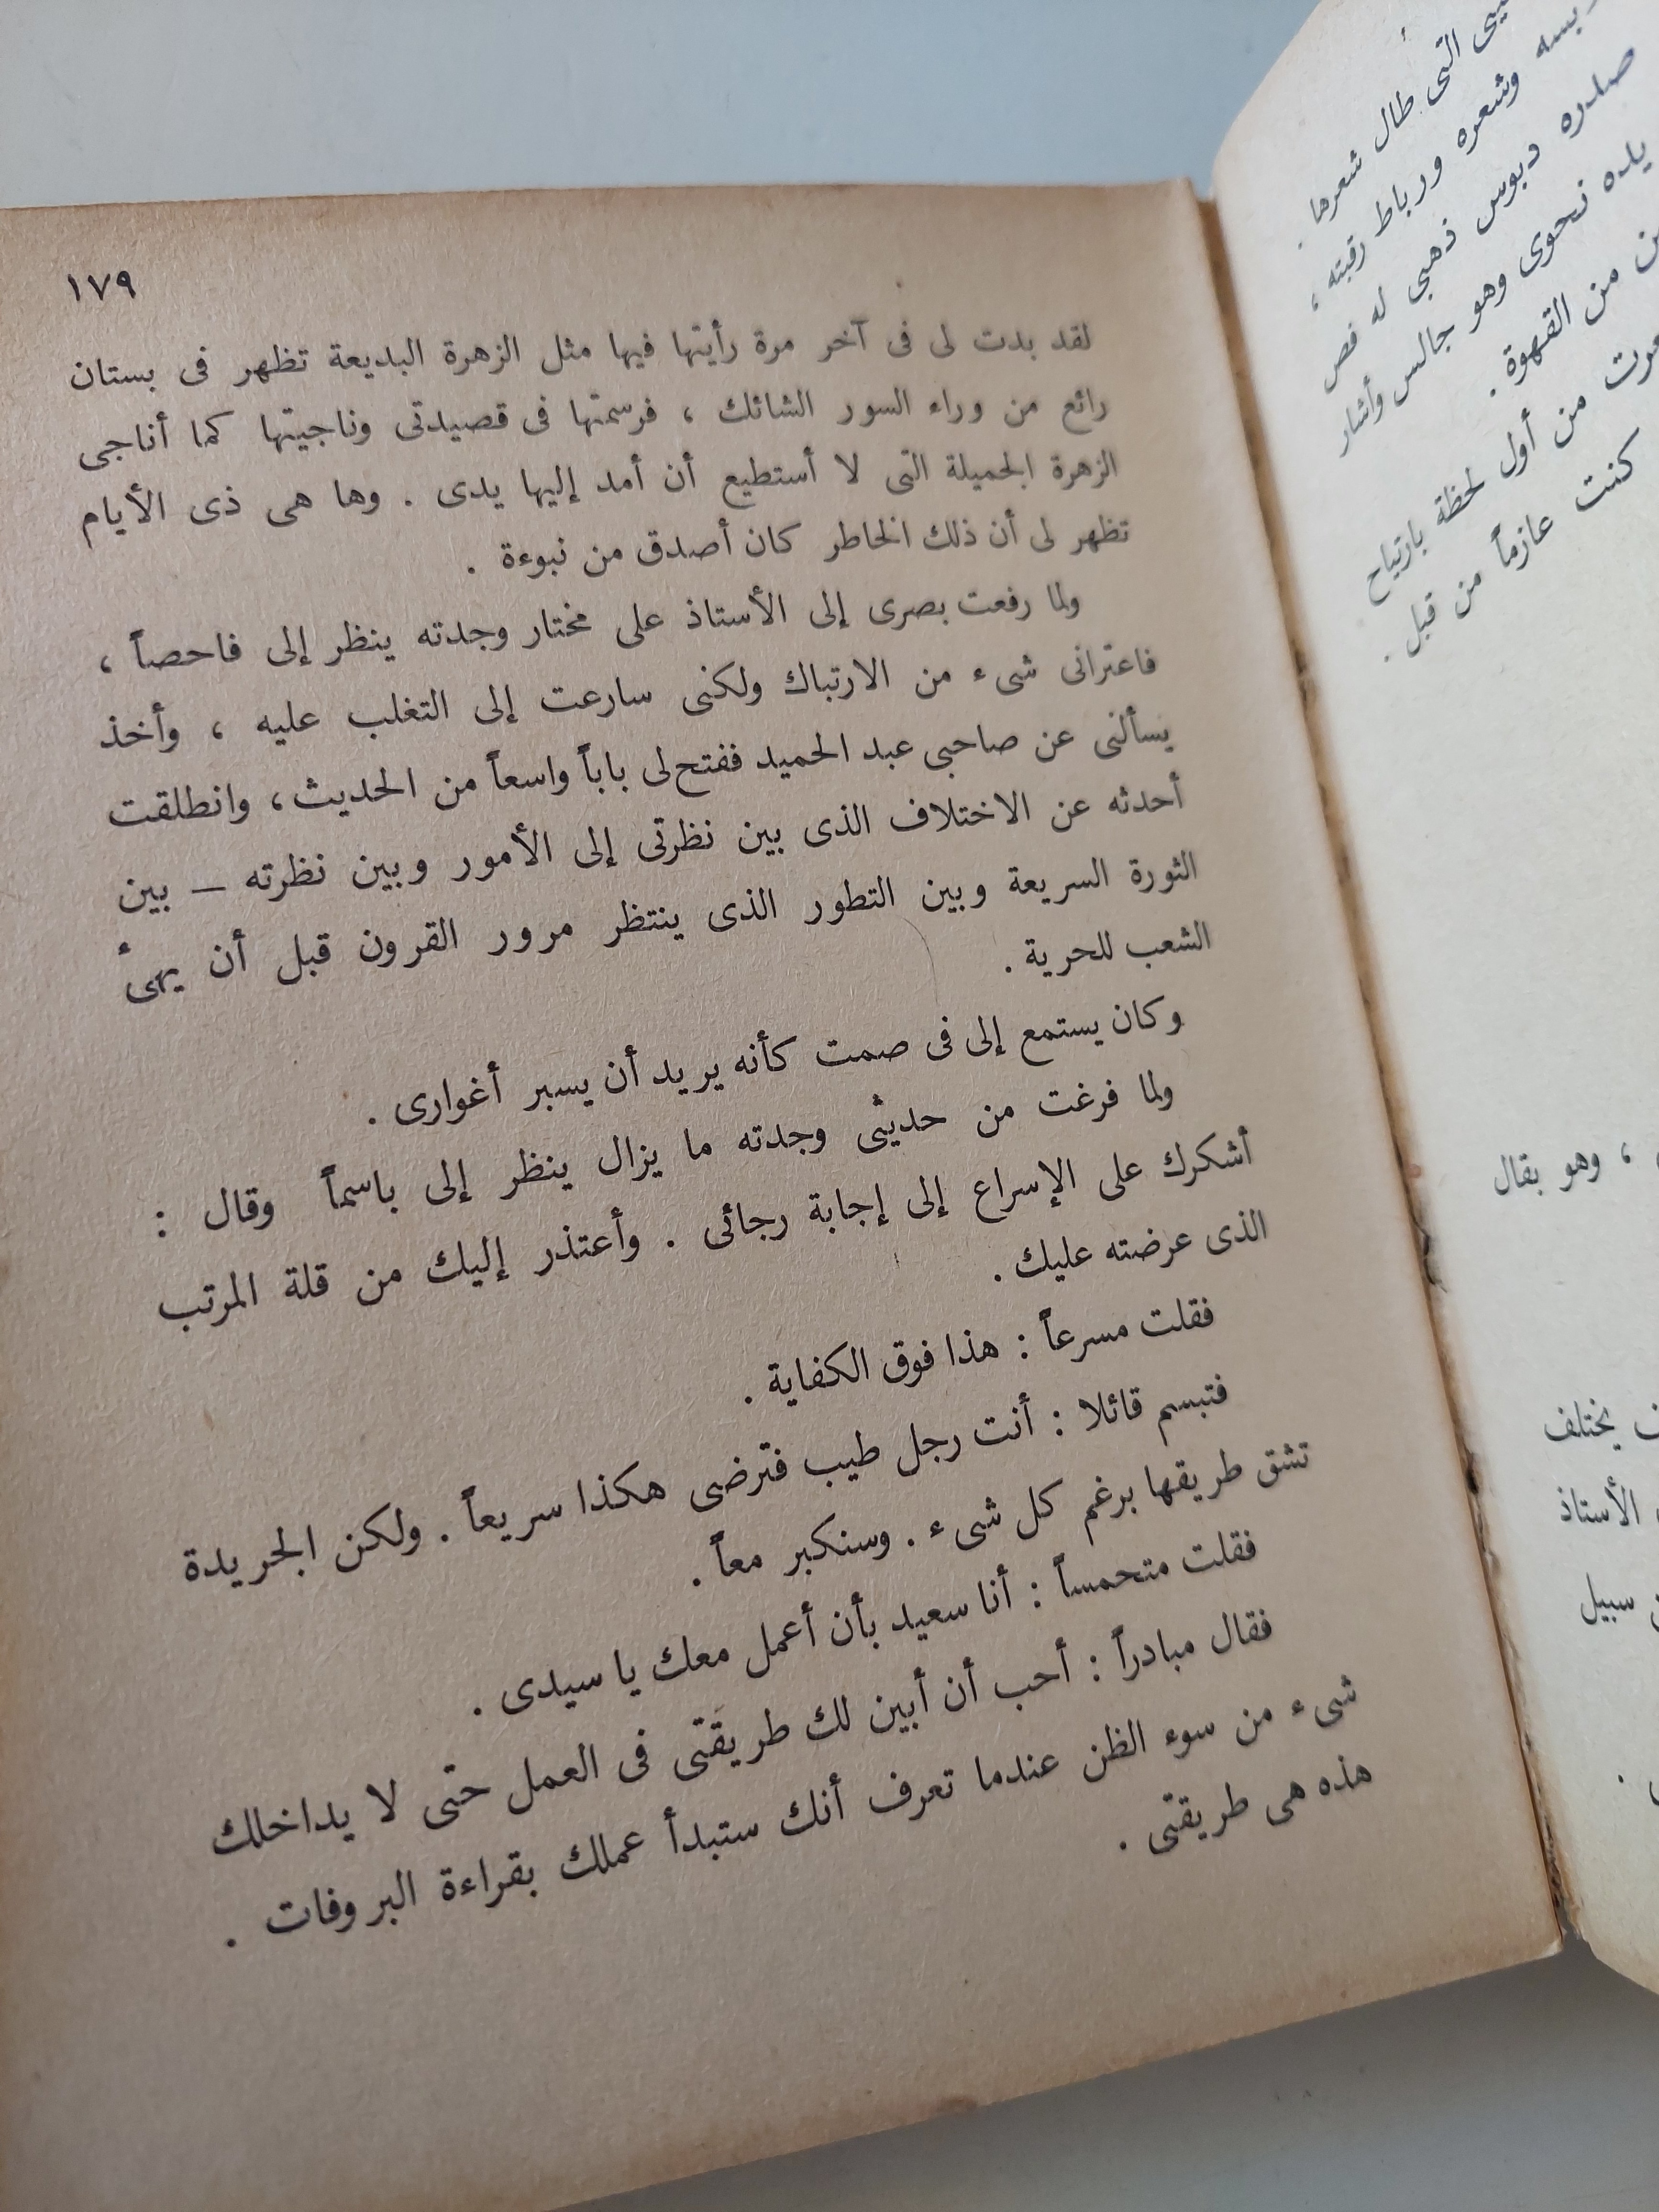 ١٧٩
لقد بدت لى فى آخر مرة رأيتها فيها مثل الزهرة البديعة تظهر فى بستان
رائع من وراء السور الشائك ، فرسمتها فى قصيدتى وناجيتها كما أناجى
الزهرة الجميلة التى لا أستطيع أن أمد إليها يدى . وها هى ذى الأيام
تظهر لى أن ذلك الخاطر كان أصدق من نبوءة .
ولما رفعت بصرى إلى الأستاذ على مختار وجدته ينظر إلى فاحصاً ،
فاعترانى شىء من الارتباك ولكنى سارعت إلى التغلب عليه ، وأخذ
يسألنى عن صاحبى عبد الحميد ففتح لى باباً واسعاً من الحديث ، وانطلقت
أحدثه عن الاختلاف الذى بين نظرتى إلى الأمور وبين نظرته — بين
الثورة السريعة وبين التطور الذى ينتظر مرور القرون قبل أن يهىءُ
الشعب للحرية .
وكان يستمع إلى فى صمت كأنه يريد أن يسبر أغوارى .
ولما فرغت من حديثى وجدته ما يزال ينظر إلى باسماً وقال :
أشكرك على الإسراع إلى إجابة رجائى . وأعتذر إليك من قلة المرتب
الذى عرضته عليك .
فقلت مسرعاً : هذا فوق الكفاية .
فتبسم قائلا : أنت رجل طيب فترضى هكذا سريعاً . ولكن الجريدة
تشق طريقها برغم كل شىء . وسنكبر معاً .
فقلت متحمساً : أنا سعيد بأن أعمل معك يا سيدى .
فقال مبادراً : أحب أن أبين لك طريقَتى فى العمل حتى لا يداخلك
شىء من سوء الظن عندما تعرف أنك ستبدأ عملك بقراءة البروفات .
هذه هى طريقتى .
التى طال شعرها .
وشعره ورباط رقبته ،
صدره دبوس ذهبى له فص
يده نحوى وهو جالس وأشار
من القهوة .
من أول لحظة بارتياح
كنت عازماً من قبل .
، وهو بقال
يختلف
الأستاذ
سبيل